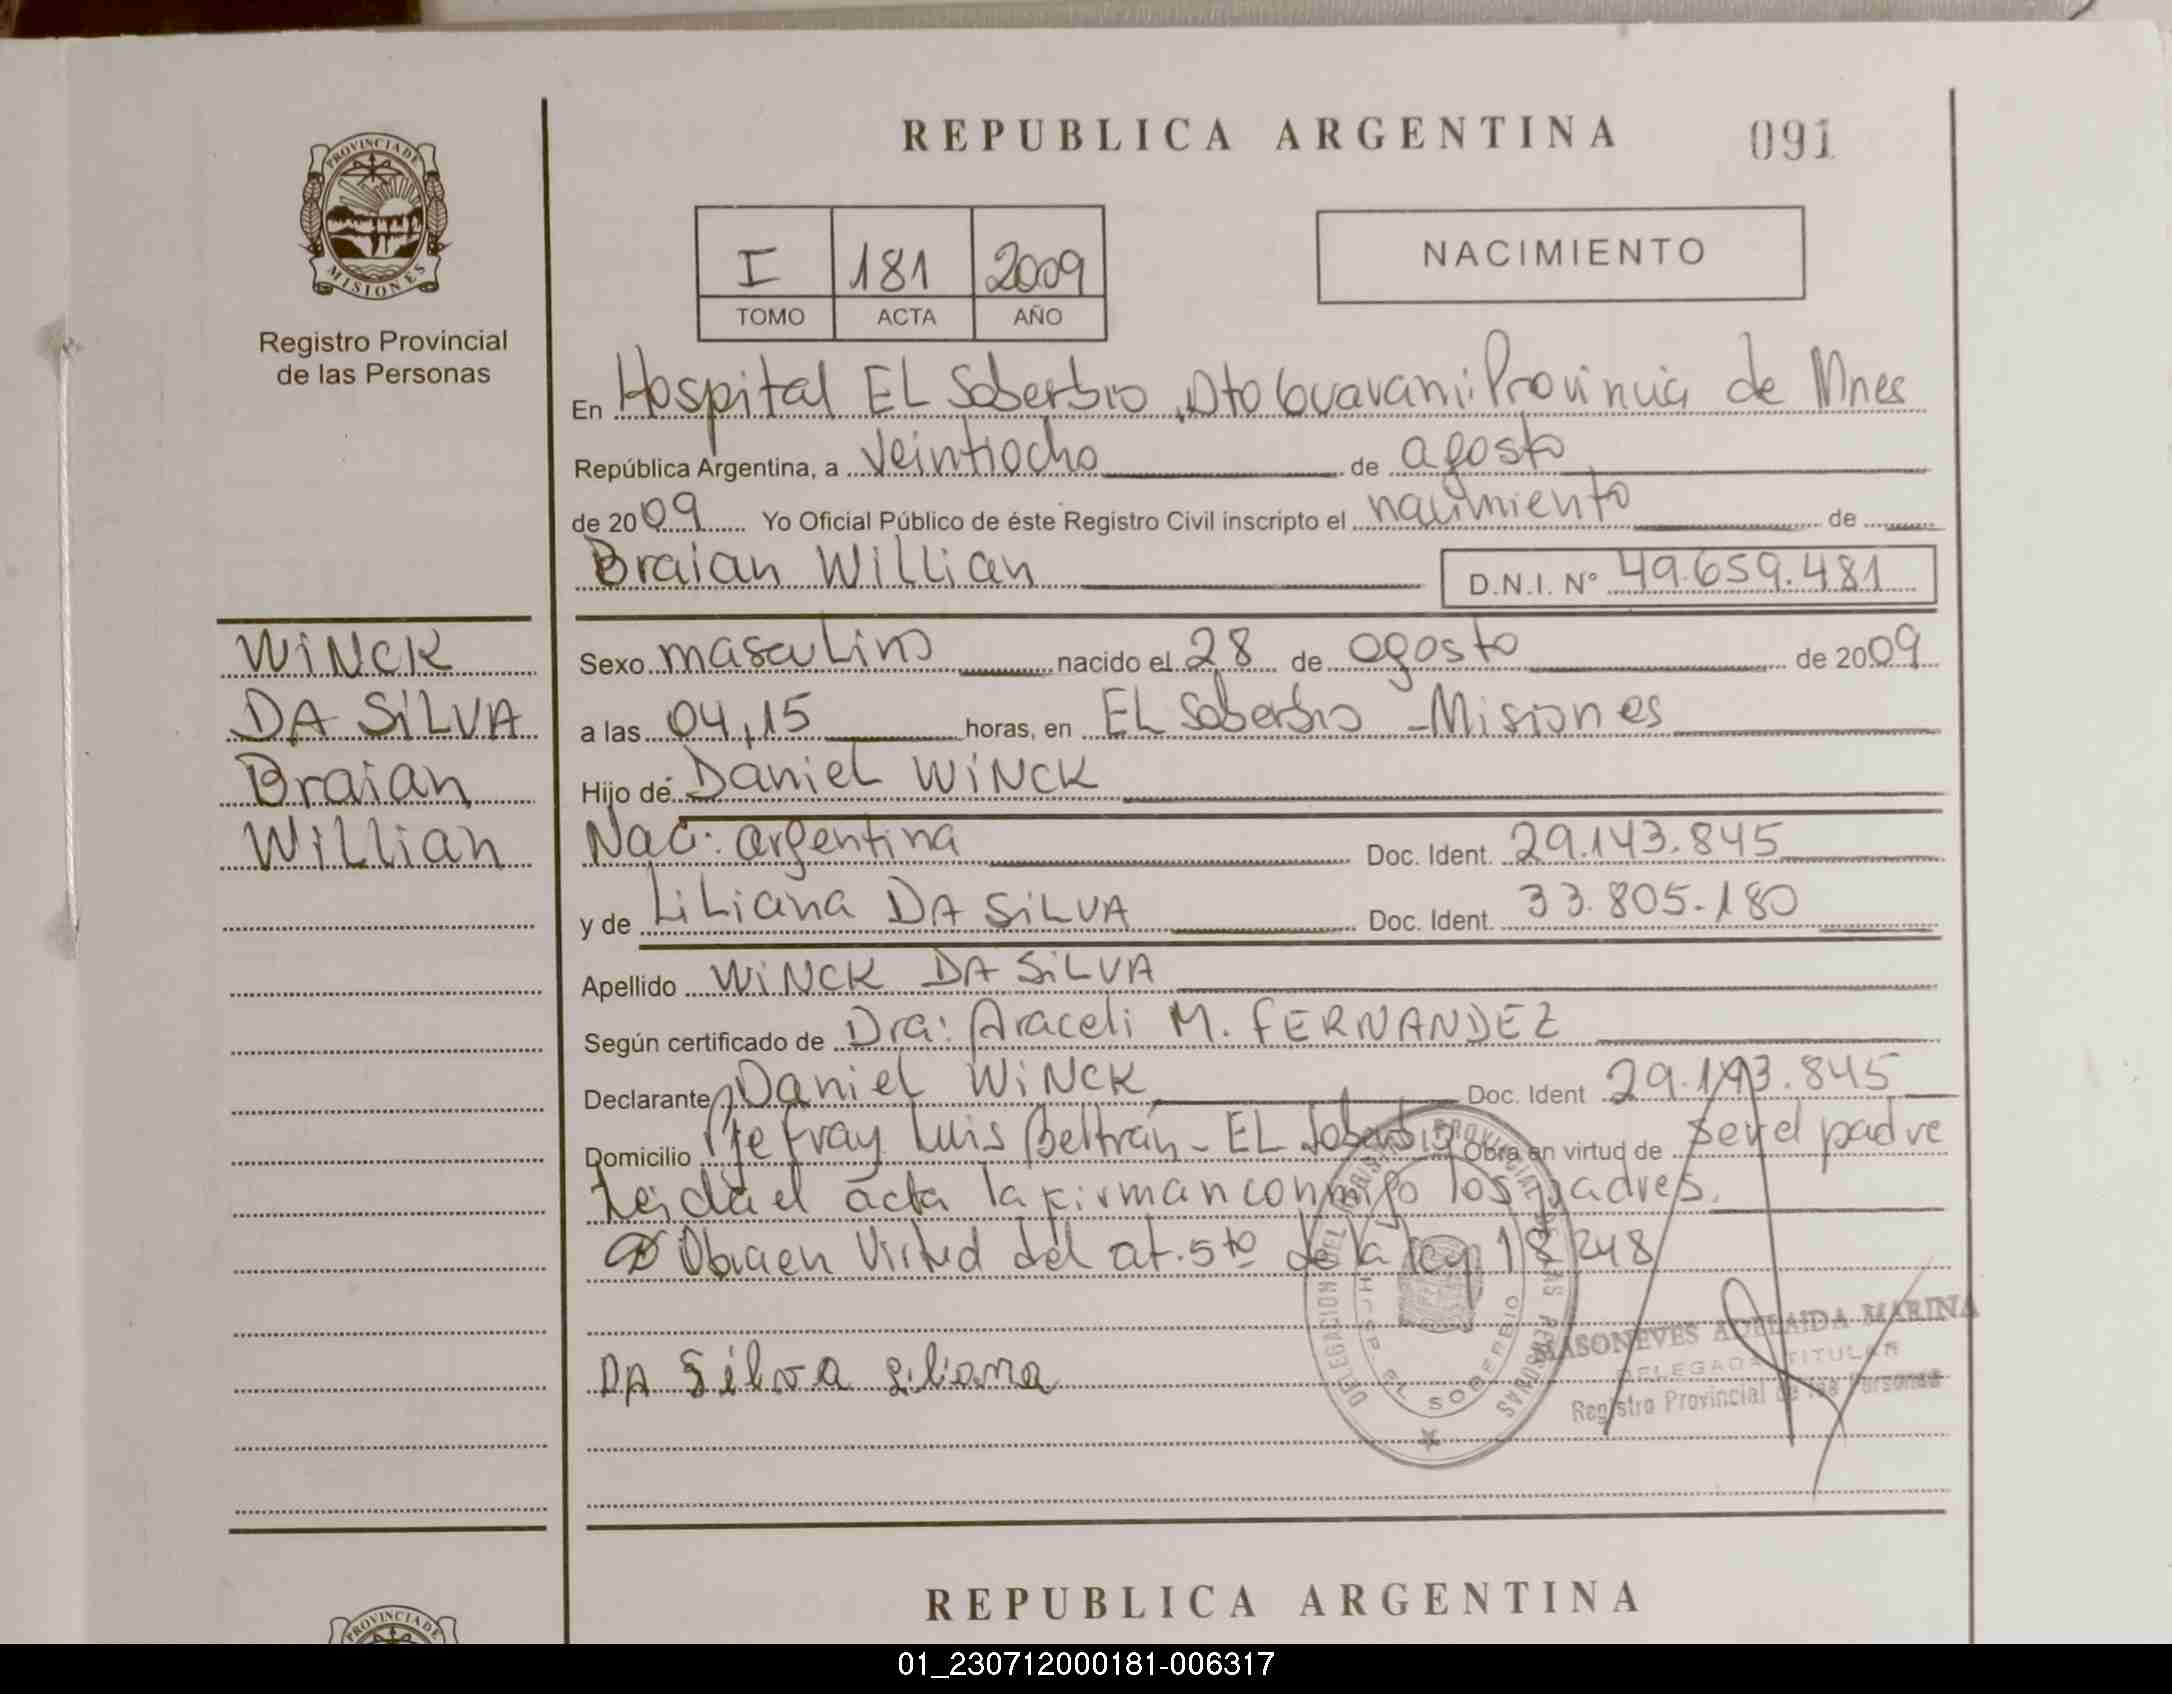 REPUBLICA ARGENTINA
091
PROVINCIA DE
MISIONES
Registro Provincial
de las Personas
I 181 2009
TOMO ACTA AÑO
NACIMIENTO
En Hospital EL Soberbio, Dto Guarani: Provincia de Mnes
República Argentina, a veintiocho de agosto
de 2009 Yo Oficial Público de éste Registro Civil inscripto el nacimiento de
Braian Willian D.N.I. Nº 49.659.481
WiNCK
DA SiLVA
Braian
Willian
Sexo masculino nacido el 28 de agosto de 2009
a las 04,15 horas, en EL Soberbio - Misiones
Hijo de Daniel WiNCK
Nac: argentina Doc. Ident. 29.143.845
y de Liliana DA SiLVA Doc. Ident. 33.805.180
Apellido WiNCK DA SiLVA
Según certificado de Dra: Araceli M. FERNANDEZ
Declarante Daniel WiNCK Doc. Ident 29.143.845
Domicilio Pje fray Luis Beltrán - EL Soberbio Obra en virtud de ser el padre
Leida el acta la firman conmigo los padres.
Obra en Virtud del at. 5to de la ley 18248
DELEGACION DEL REGISTRO PROVINCIAL DE LAS PERSONAS
HOSP. EL SOBERBIO
MASONEVES ADELAIDA MARINA
DELEGADA TITULAR
Registro Provincial de las Personas
DA Silva Liliana
REPUBLICA ARGENTINA
PROVINCIA DE
01_230712000181-006317